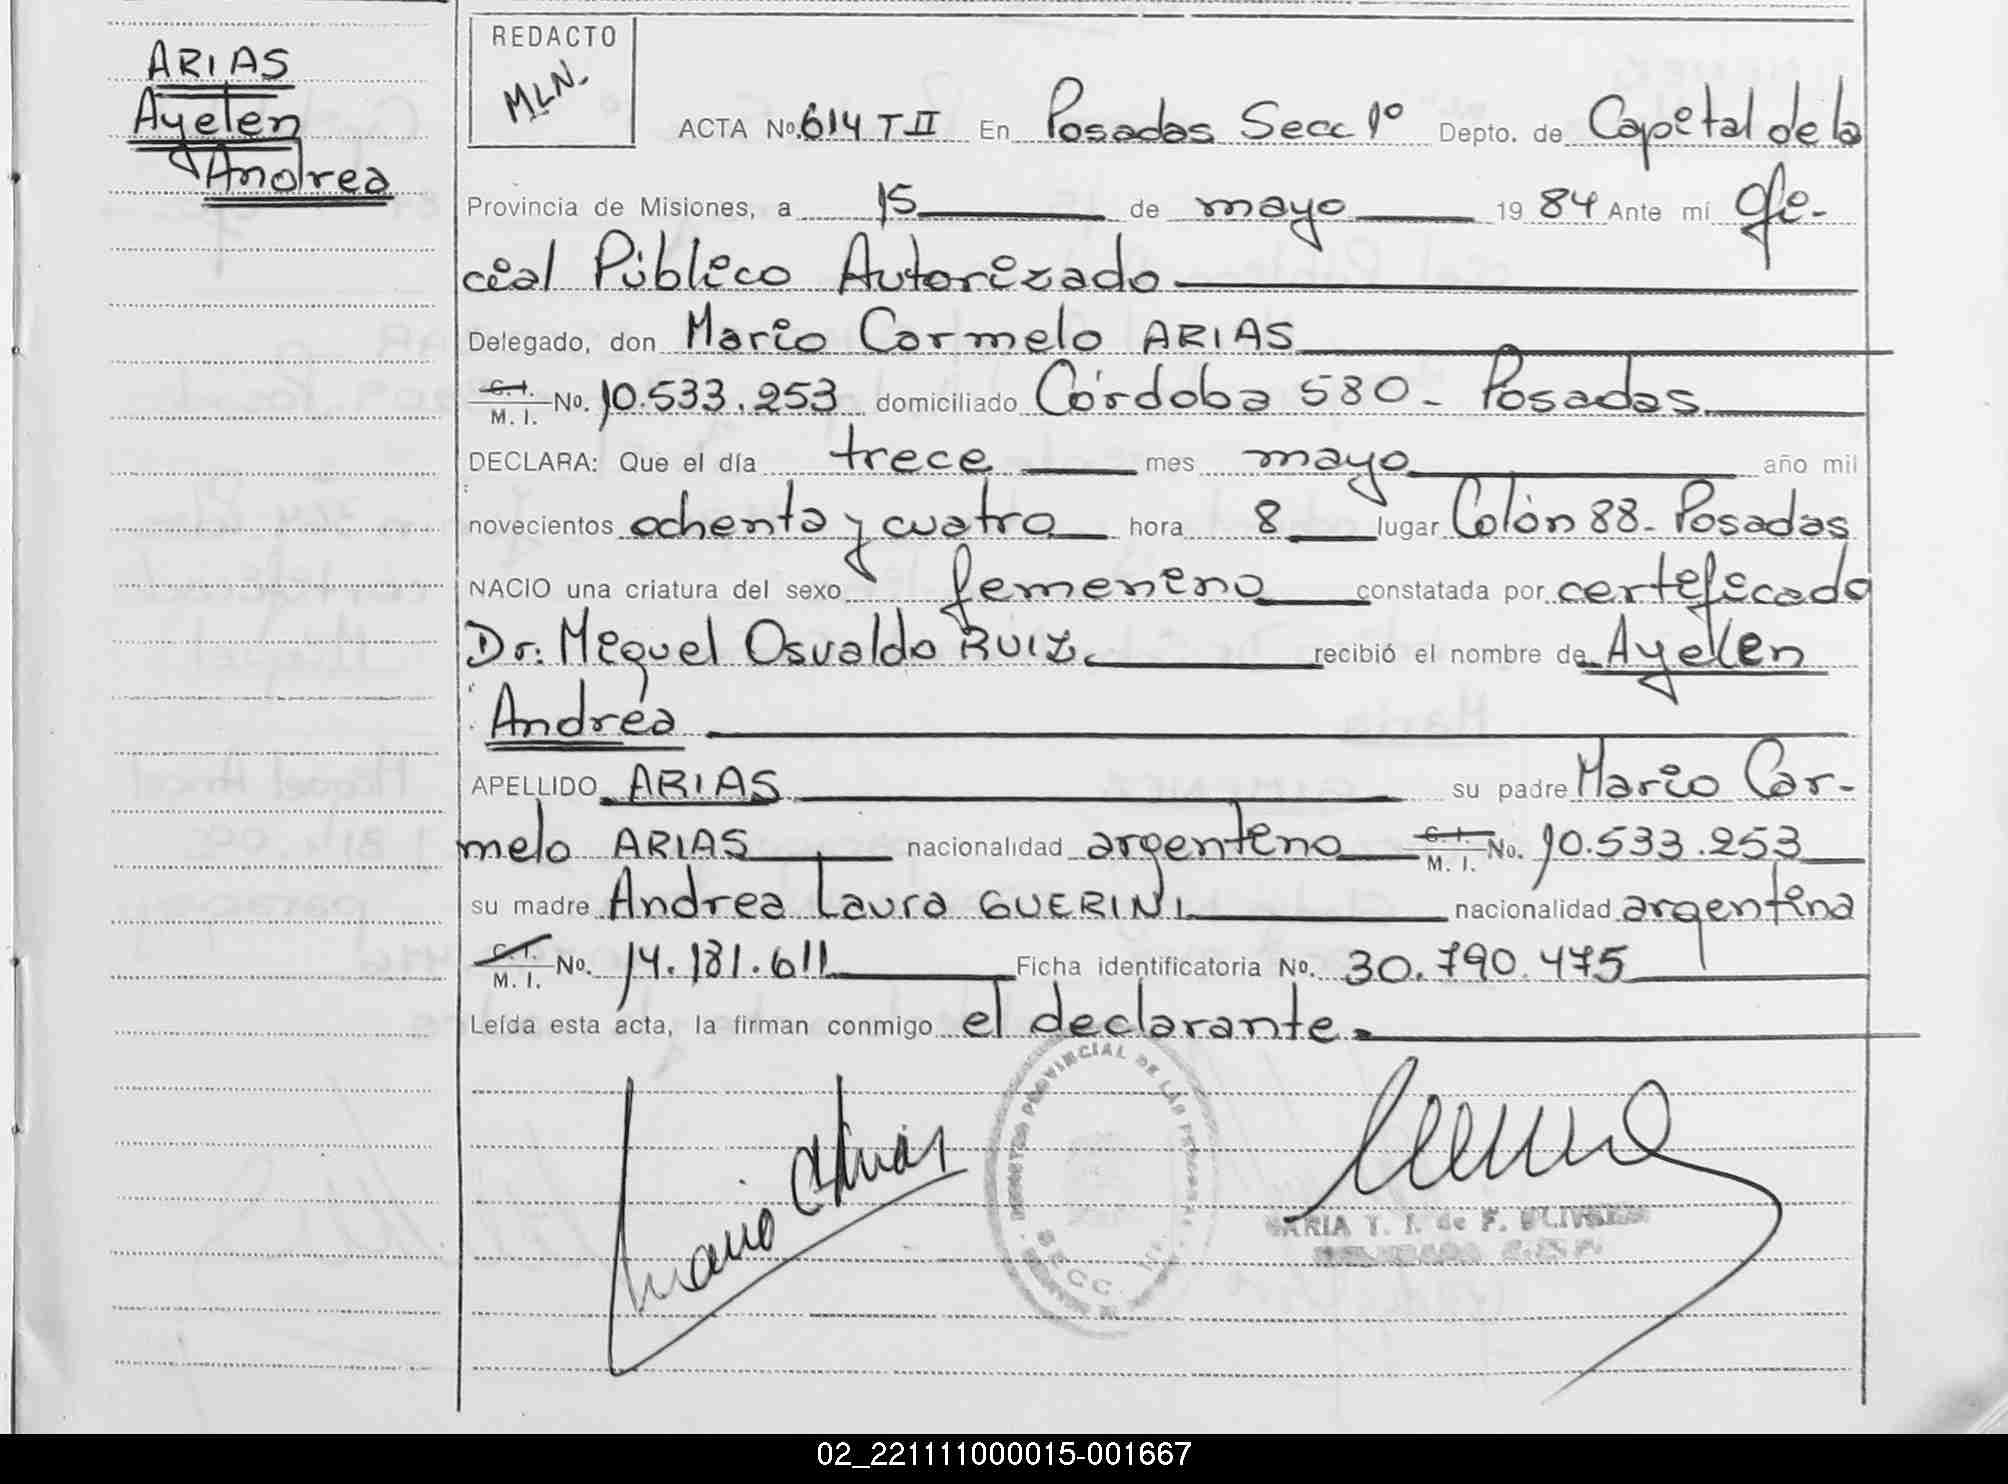 ARIAS
Ayelen
Andrea
REDACTO
MLN.
ACTA No. 614 T II En Posadas Secc 1º Depto. de Capital de la
Provincia de Misiones, a 15 de mayo 1984 Ante mí Ofi-
cial Público Autorizado
Delegado, don Mario Carmelo ARIAS
C. I.
M. I. No. 10.533.253 domiciliado Córdoba 580 - Posadas
DECLARA: Que el día trece mes mayo año mil
novecientos ochenta y cuatro hora 8 lugar Colón 88 - Posadas
NACIO una criatura del sexo femenino constatada por certificado
Dr. Miguel Osvaldo RUIZ recibió el nombre de Ayelen
Andrea
APELLIDO ARIAS su padre Mario Car-
melo ARIAS nacionalidad argentino C. I. M. I. No. 10.533.253
su madre Andrea Laura GUERINI nacionalidad argentina
C. I.
M. I. No. 14.181.611 Ficha identificatoria No. 30.790.475
Leída esta acta, la firman conmigo el declarante.
Mario Arias
PROVINCIAL DE LAS
SECC.
MARIA Y. T. de F.
02_221111000015-001667